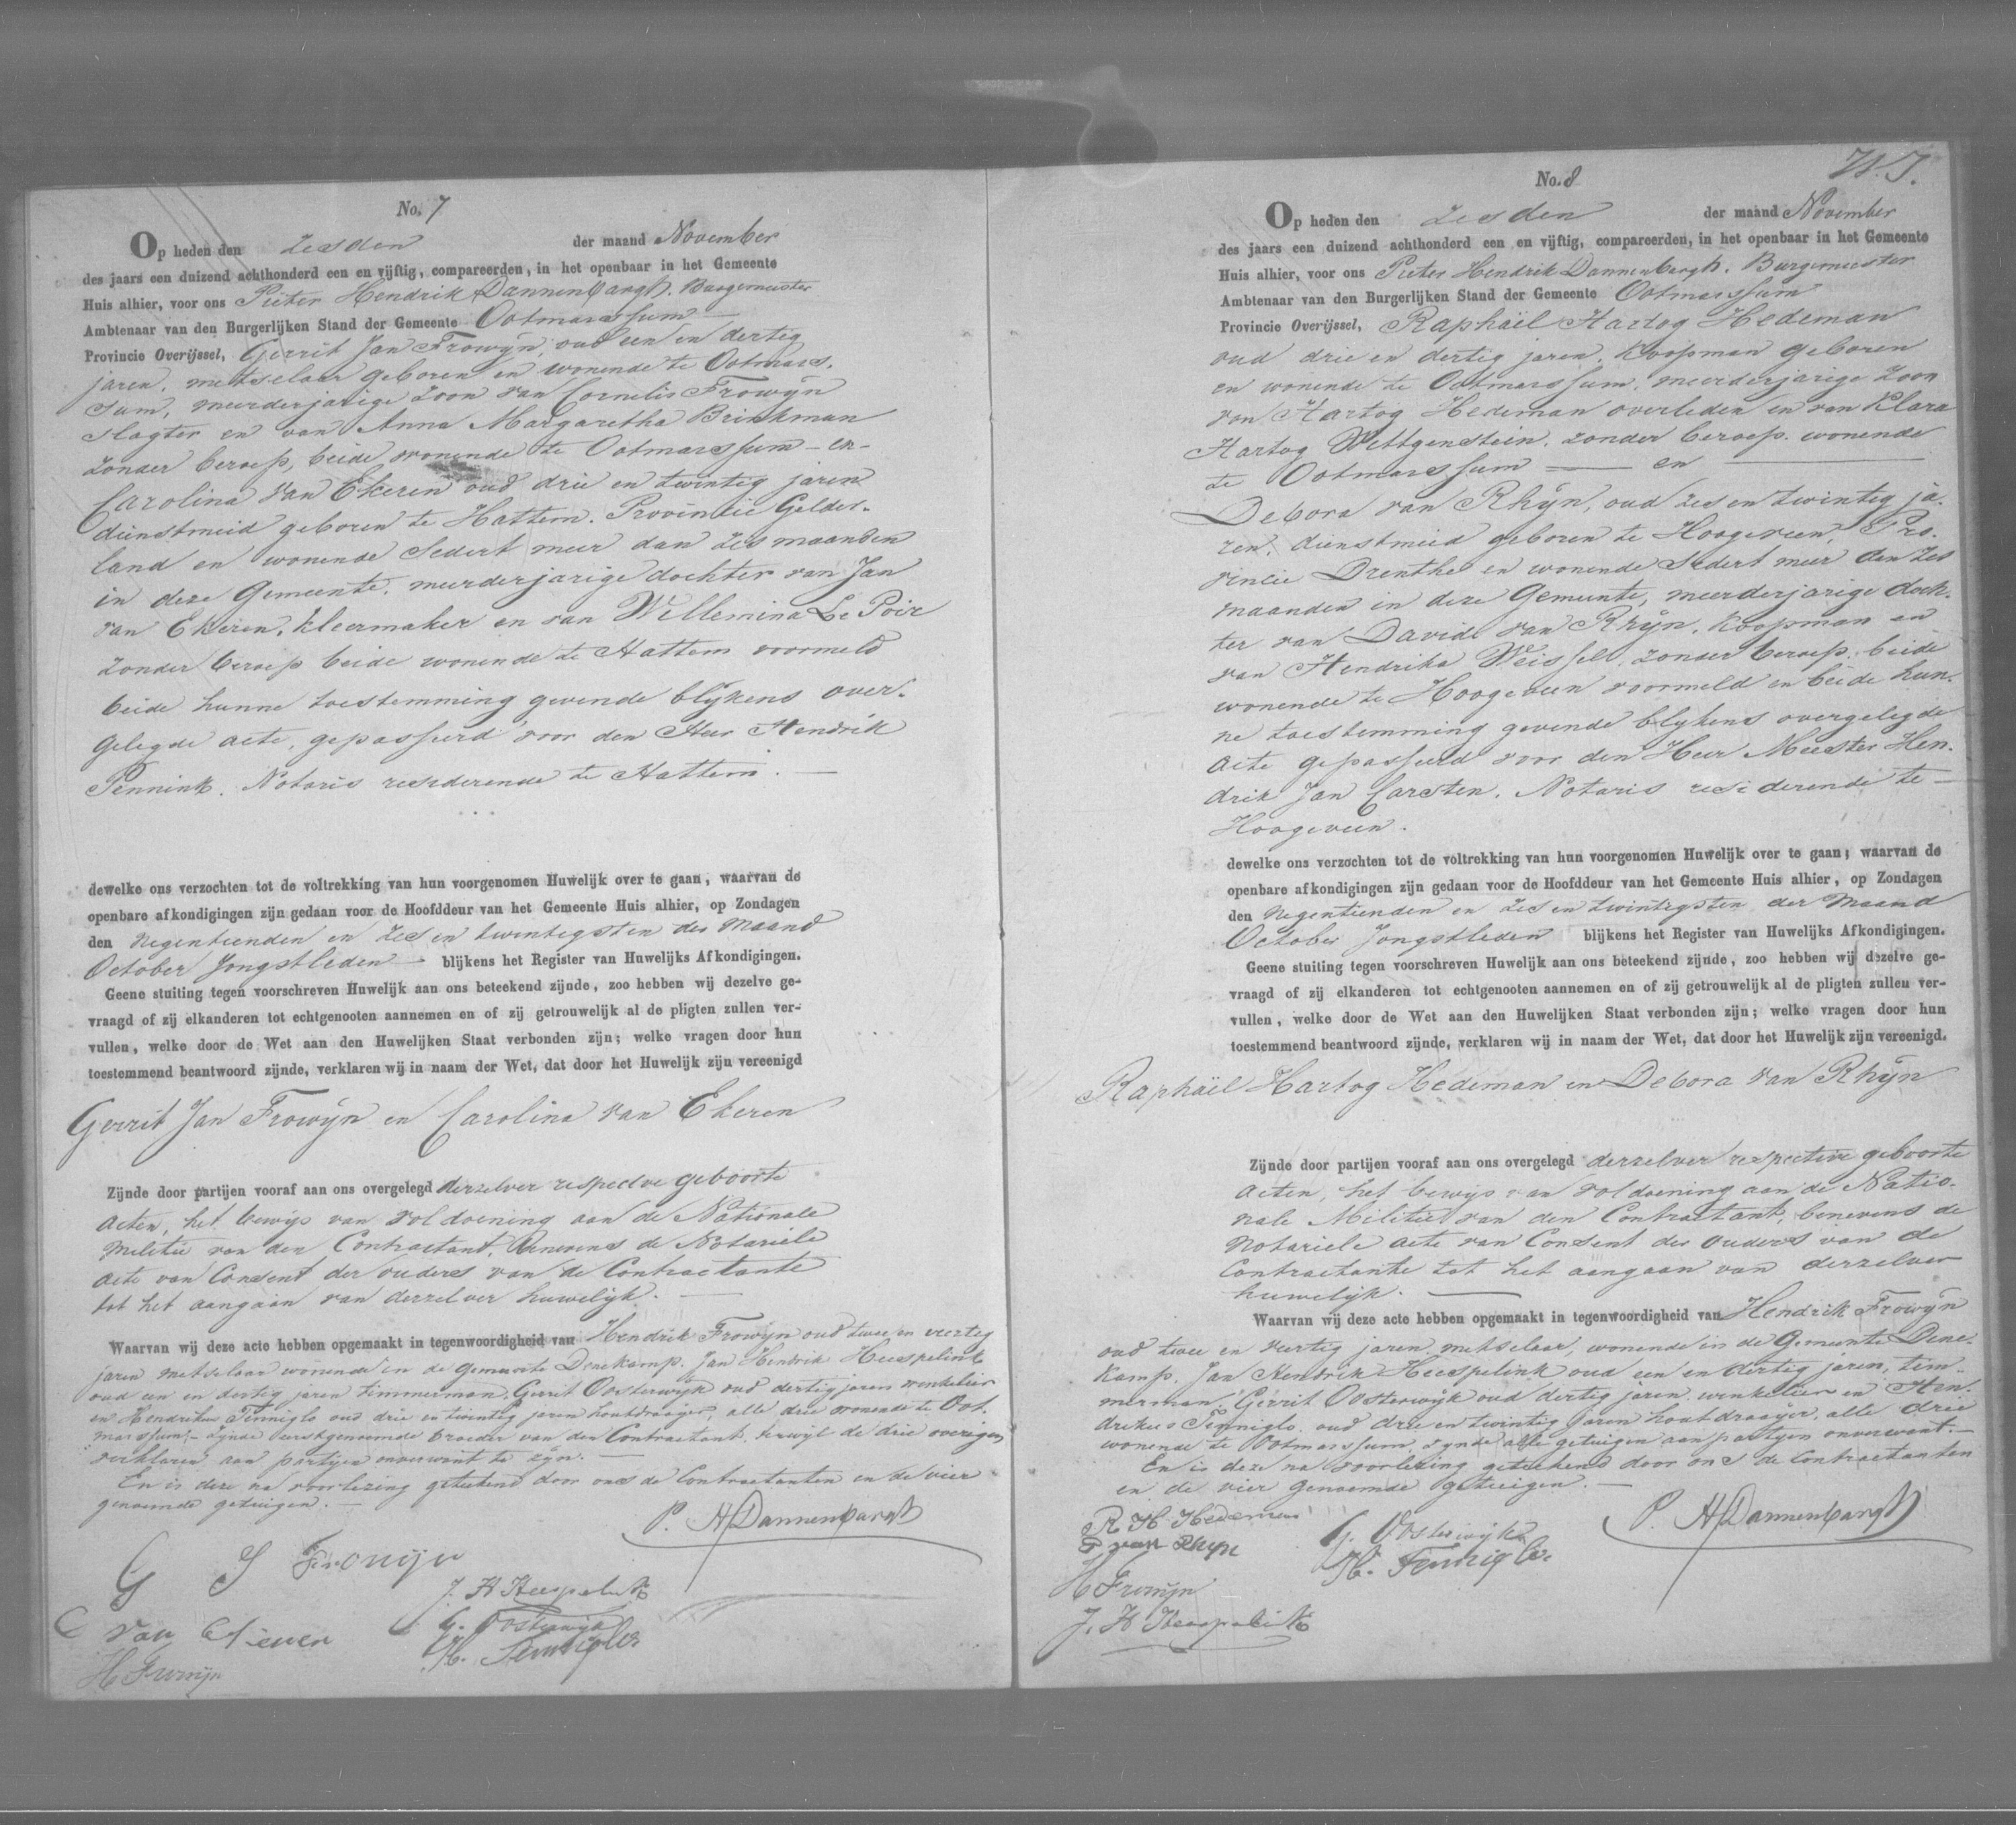 No. 7
Op heden den zesden der maand November
des jaars een duizend achthonderd een en vijftig, compareerden, in het openbaar in het Gemeente
Huis alhier, voor ons Pieter Hendrik Dannenbargh. Burgemeester
Ambtenaar van den Burgerlijken Stand der Gemeente Ootmarssum
Provincie Overijssel, Gerrit Jan Frowijn, oud een en dertig
jaren, metselaar geboren en wonende te Ootmars-
sum, meerderjarige zoon van Cornelis Frowijn
slagter en van Anna Margaretha Brinkman
zonder beroep, beide wonende te Ootmarssum - en -
Carolina van Ekeren oud drie en twintig jaren
dienstmeid geboren te Hattem. Provintie Gelder-
land en wonende sedert meer dan zes maanden
in deze Gemeente, meerderjarige dochter van Jan
van Ekeren, kleermaker en van Willemina Le Poir
zonder beroep beide wonende te Hattem voormeld
beide hunne toestemming gevende blijkens over-
gelegde acte, gepasseerd voor den Heer Hendrik
Pennink. Notaris resiederende te Hattem.
dewelke ons verzochten tot de voltrekking van hun voorgenomen Huwelijk over te gaan, waarvan de
openbare afkondigingen zijn gedaan voor de Hoofddeur van het Gemeente Huis alhier, op Zondagen
den negentienden en zes en twintigsten der maand
October jongstleden blijkens het Register van Huwelijks Afkondigingen.
Geene stuiting tegen voorschreven Huwelijk aan ons beteekend zijnde, zoo hebben wij dezelve ge-
vraagd of zij elkanderen tot echtgenooten aannemen en of zij getrouwelijk al de pligten zullen ver-
vullen, welke door de Wet aan den Huwelijken Staat verbonden zijn; welke vragen door hun
toestemmend beantwoord zijnde, verklaren wij in naam der Wet, dat door het Huwelijk zijn vereenigd
Gerrit Jan Frowijn en Carolina van Ekeren
Zijnde door partijen vooraf aan ons overgelegd derzelver respective geboorte
acten, het bewijs van voldoening aan de Nationale
militie van den Contractant, benevens de Notariële
acte van Consent der ouders van de Contractante
tot het aangaan van derzelver huwelijk.
Waarvan wij deze acte hebben opgemaakt in tegenwoordigheid van Hendrik Frowijn oud twee en veertig
jaren metselaar wonende in de gemeente Denekamp. Jan Hendrik Heespelink
oud een en dertig jaren timmerman, Gerrit Oosterwijk oud dertig jaren winkelier
en Hendrikus Tenniglo oud drie en twintig jaren houtdraaijer, alle drie wonende te Oot-
marssum, zijnde eerstgenoemde broeder van den Contractant, terwijl de drie overigen
verklaren aan partijen onverwant te zijn.
En is deze na voorlezing geteekend door ons de Contractanten en de vier
genoemde getuigen.
P. H Dannenbargh
G J Frowijn
J. H Heespelink
C van Ekeren
G. Oosterwijk
H. Tenniglo
H Frowijn
W. J.
No. 8
Op heden den zesden der maand November
des jaars een duizend achthonderd een en vijftig, compareerden, in het openbaar in het Gemeente
Huis alhier, voor ons Pieter Hendrik Dannenbargh. Burgemeester
Ambtenaar van den Burgerlijken Stand der Gemeente Ootmarssum
Provincie Overijssel, Raphaël Hartog Hedeman
oud drie en dertig jaren, koopman geboren
en wonende te Ootmarssum, meerderjarige zoon
van Hartog Hedeman overleden en van Klara
Hartog Wittgenstein, zonder beroep, wonende
te Ootmarssum — en —
Debora van Rhijn, oud zes en twintig ja-
ren, dienstmeid geboren te Hoogeveen, Pro-
vincie Drenthe en wonende sedert meer dan zes
maanden in deze Gemeente, meerderjarige doch-
ter van David van Rhijn, koopman en
van Hendrika Weissel, zonder beroep, beide
wonende te Hoogeveen voormeld en beide hun-
ne toestemming gevende blijkens overgelegde
acte gepasseerd voor den Heer Meester Hen-
drik Jan Carsten, Notaris resiederende te
Hoogeveen.
dewelke ons verzochten tot de voltrekking van hun voorgenomen Huwelijk over te gaan; waarvan de
openbare afkondigingen zijn gedaan voor de Hoofddeur van het Gemeente Huis alhier, op Zondagen
den negentienden en zes en twintigsten der maand
October jongstleden blijkens het Register van Huwelijks Afkondigingen.
Geene stuiting tegen voorschreven Huwelijk aan ons beteekend zijnde, zoo hebben wij dezelve ge-
vraagd of zij elkanderen tot echtgenooten aannemen en of zij getrouwelijk al de pligten zullen ver-
vullen, welke door de Wet aan den Huwelijken Staat verbonden zijn; welke vragen door hun
toestemmend beantwoord zijnde, verklaren wij in naam der Wet, dat door het Huwelijk zijn vereenigd.
Raphaël Hartog Hedeman en Debora van Rhijn
Zijnde door partijen vooraf aan ons overgelegd derzelver respective geboorte
acten, het bewijs van voldoening aan de Natio-
nale Militie van den Contractant, benevens de
notariele acte van Consent der ouders van de
Contractante tot het aangaan van derzelver
huwelijk.
Waarvan wij deze acte hebben opgemaakt in tegenwoordigheid van Hendrik Frowijn
oud twee en veertig jaren, metselaar, wonende in de Gemeente Dene-
kamp. Jan Hendrik Heespelink oud een en dertig jaren, tim-
merman, Gerrit Oosterwijk oud dertig jaren, winkelier en Hen-
drikus Tenniglo, oud drie en twintig jaren houtdraaijer, alle drie
wonende te Ootmarssum, zynde alle getuigen aan partyen onverwant.
En is deze na voorlezing geteekend door ons de Contractanten
en de vier genoemde getuigen.
P. H Dannenbargh
R H Hedeman
G. Oosterwijk
D van Rhijn
H. Tenniglo
H Frowijn
J. H Heespelink